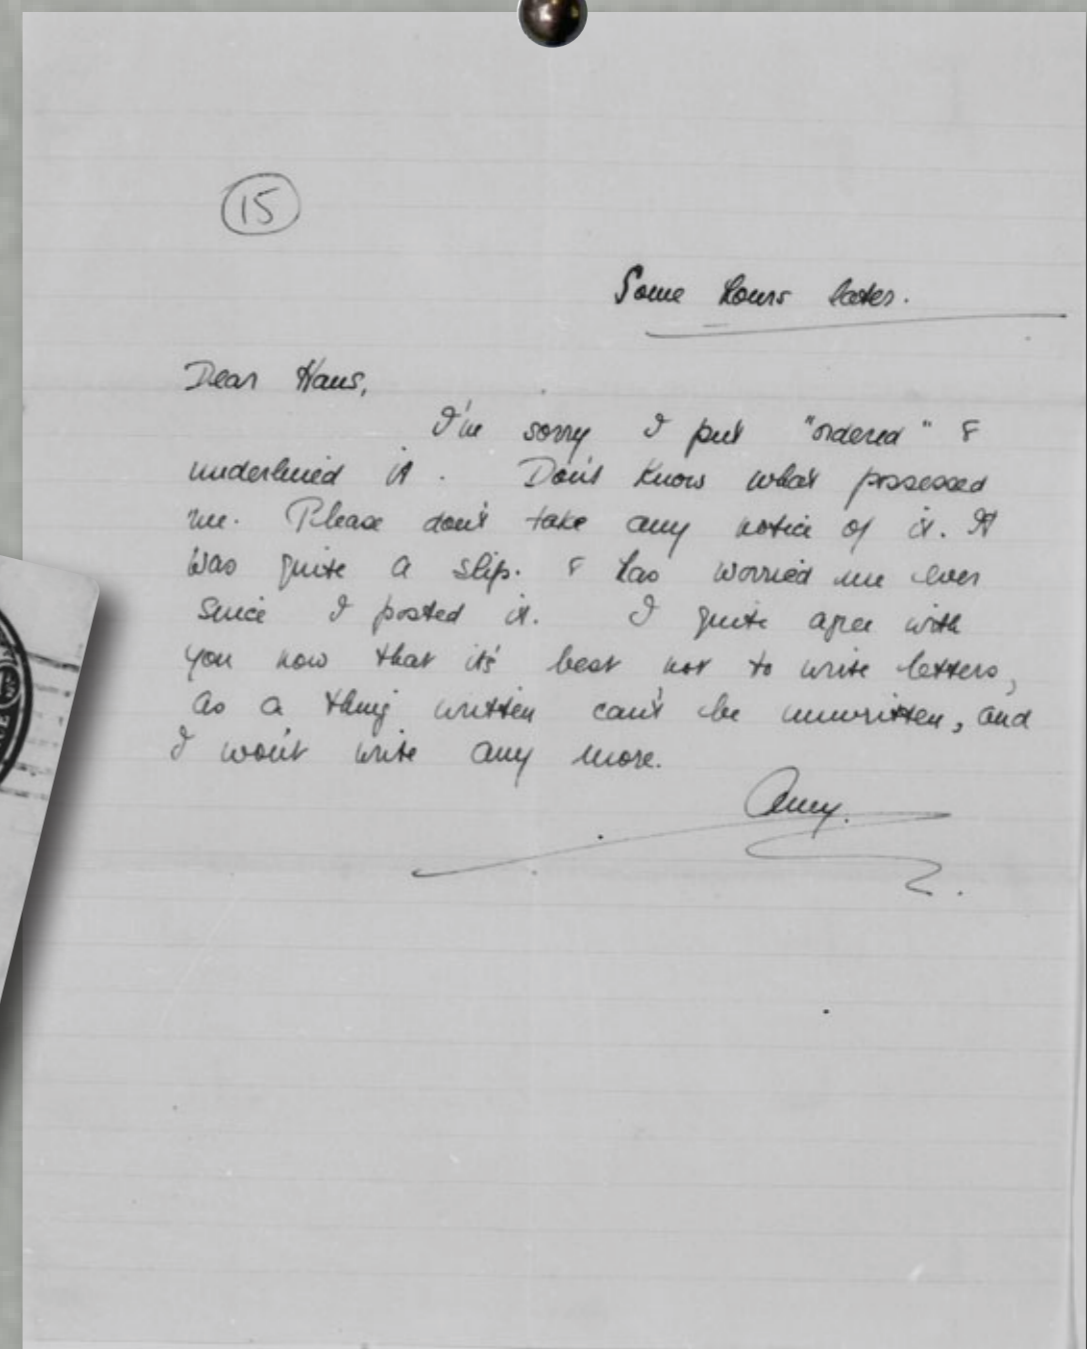 15
Some hours later.
Dear Hans,
I'm sorry I put "ordered" &
underlined it. Don't know what possessed
me. Please don't take any notice of it. It
was quite a slip. & has worried me ever
since I posted it. I quite agree with
you now that its' best not to write letters,
as a thing written can't be unwritten, and
I won't write any more.
Amy.